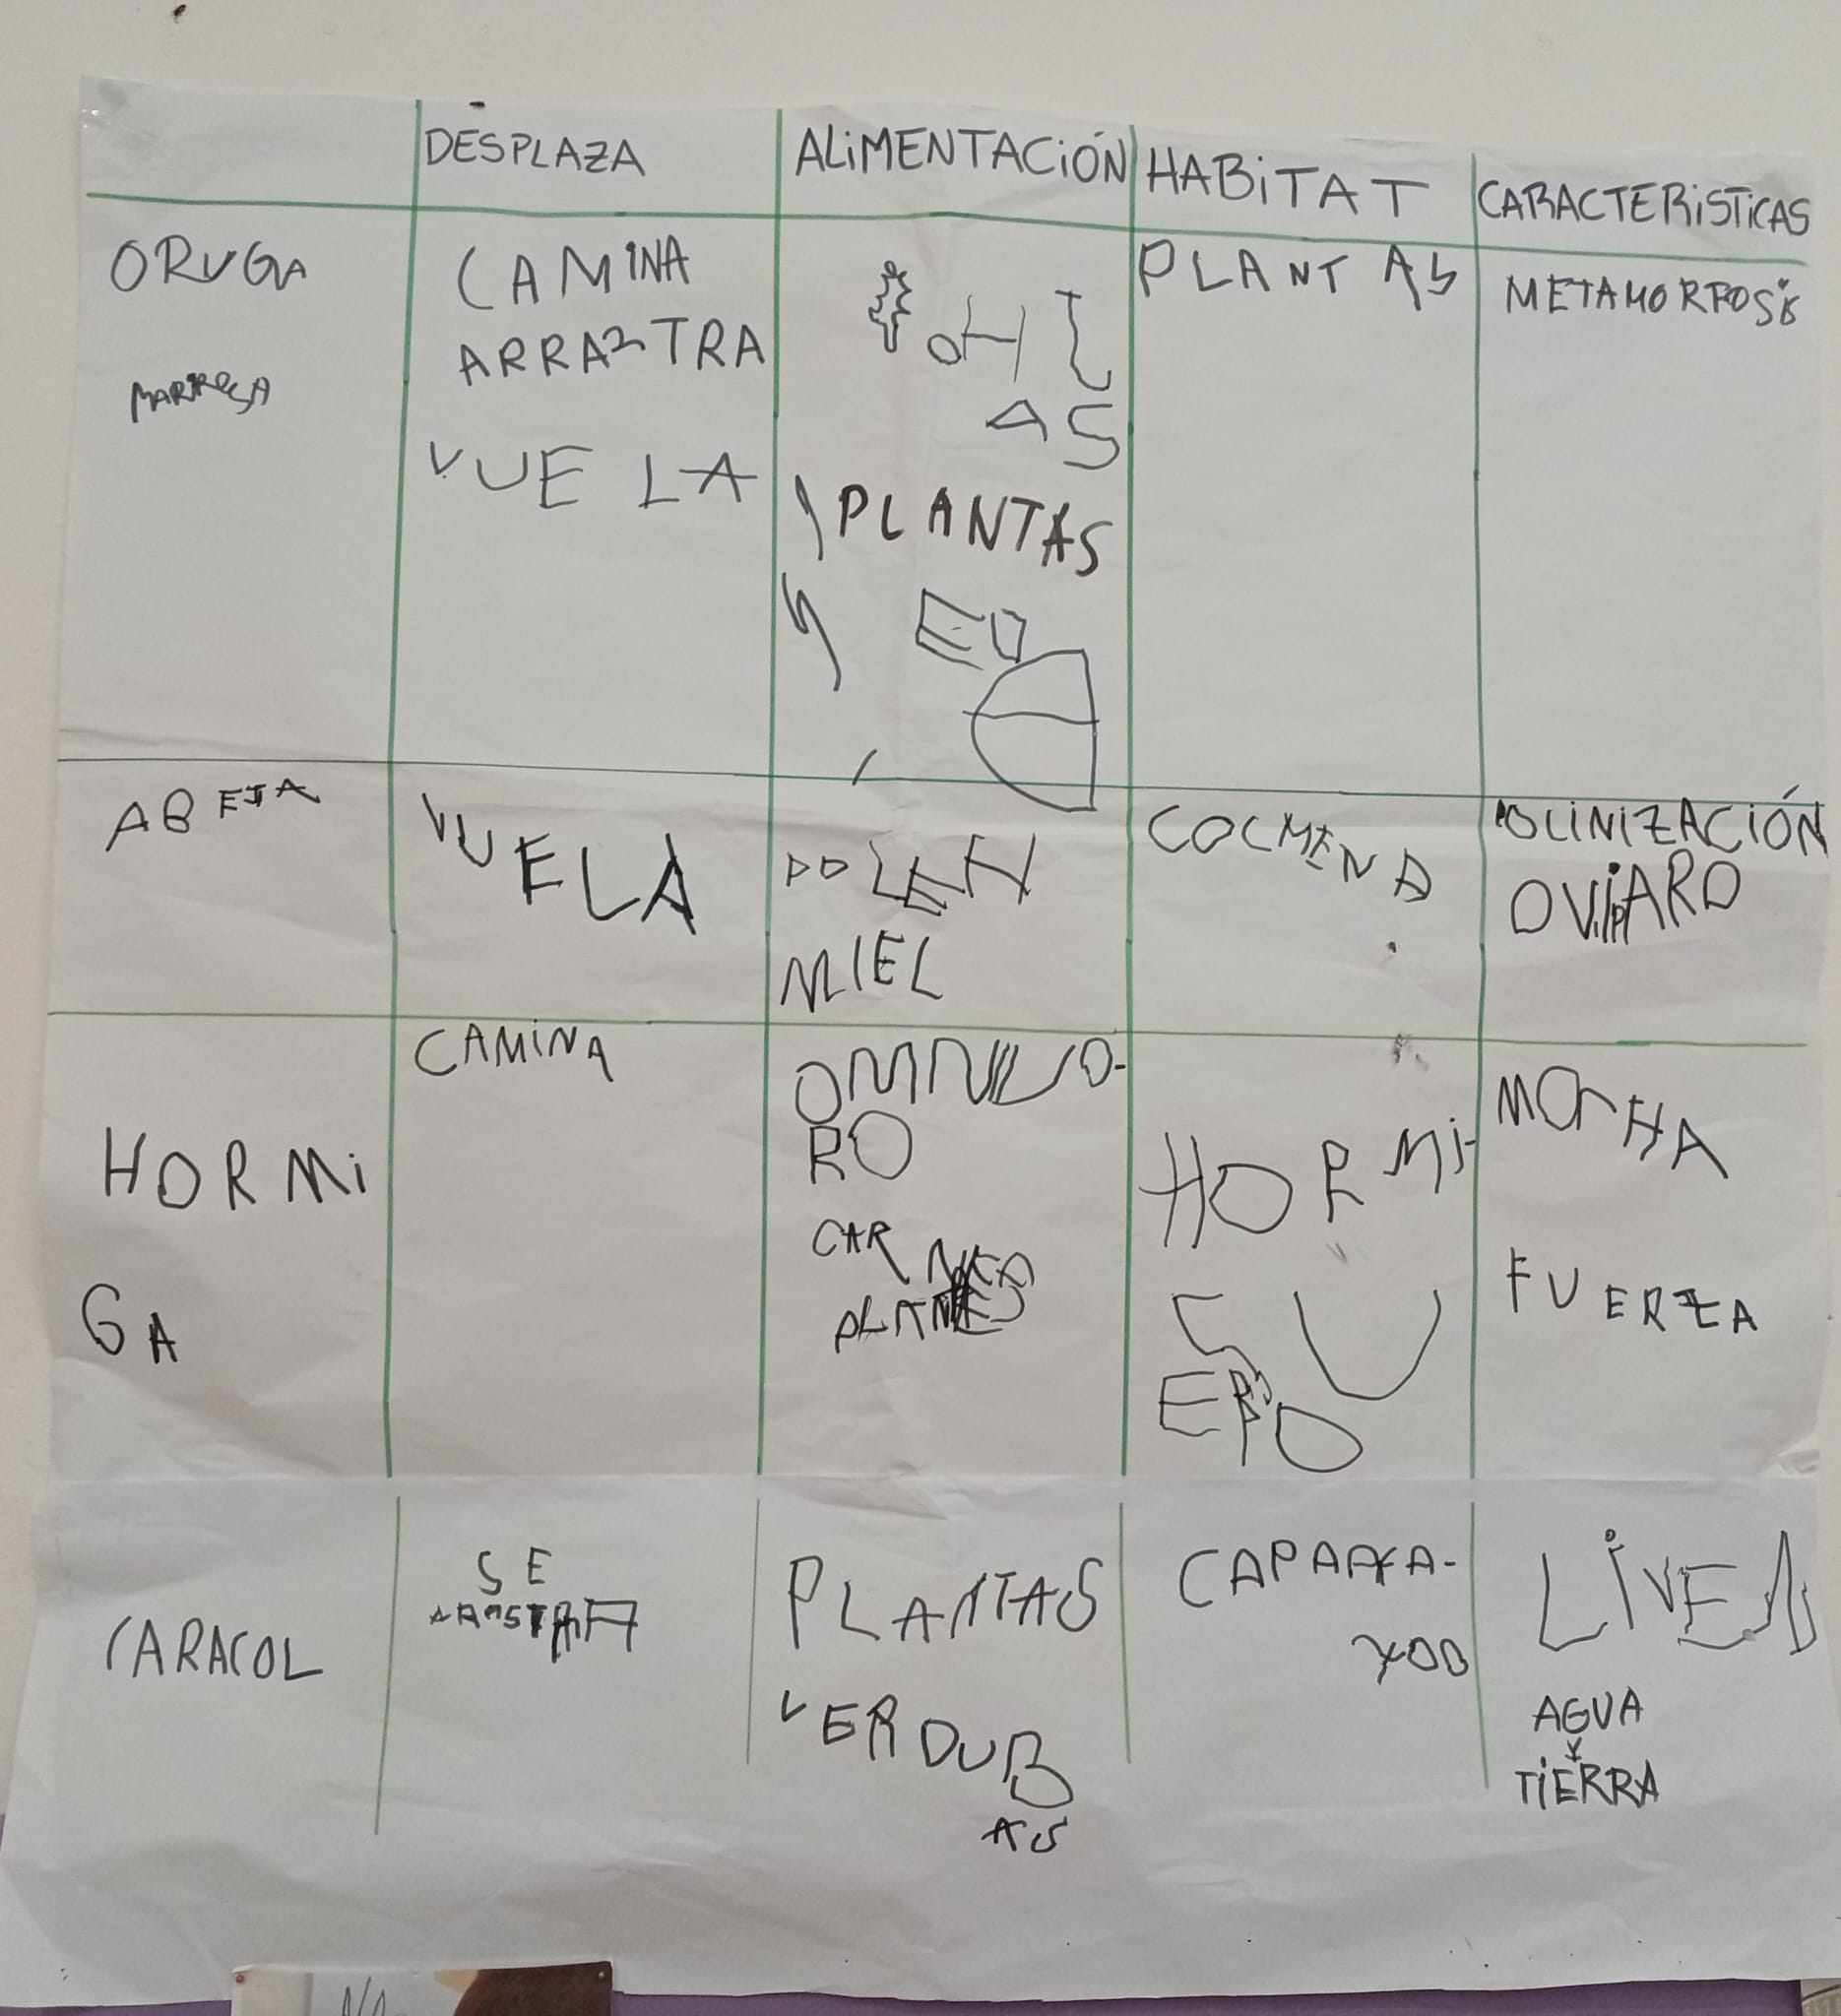 DESPLAZA ALIMENTACIÓN HABITAT CARACTERISTICAS
ORUGA
CAMINA
ARRASTRA
VUELA
HOJ
AS
PLANTAS
PLANTAS
METAMORFOSIS
ABEJA
VUELA
POLEN
MIEL
COLMENA
POLINIZACIÓN
HORMI
GA
CAMINA
OMNIVO-
RO
CAR
HORMI-
GU
ERO
FUERZA
CARACOL
SE
PLANTAS
VERDUR
AS
CAPARA-
AGUA
Y
TIERRA